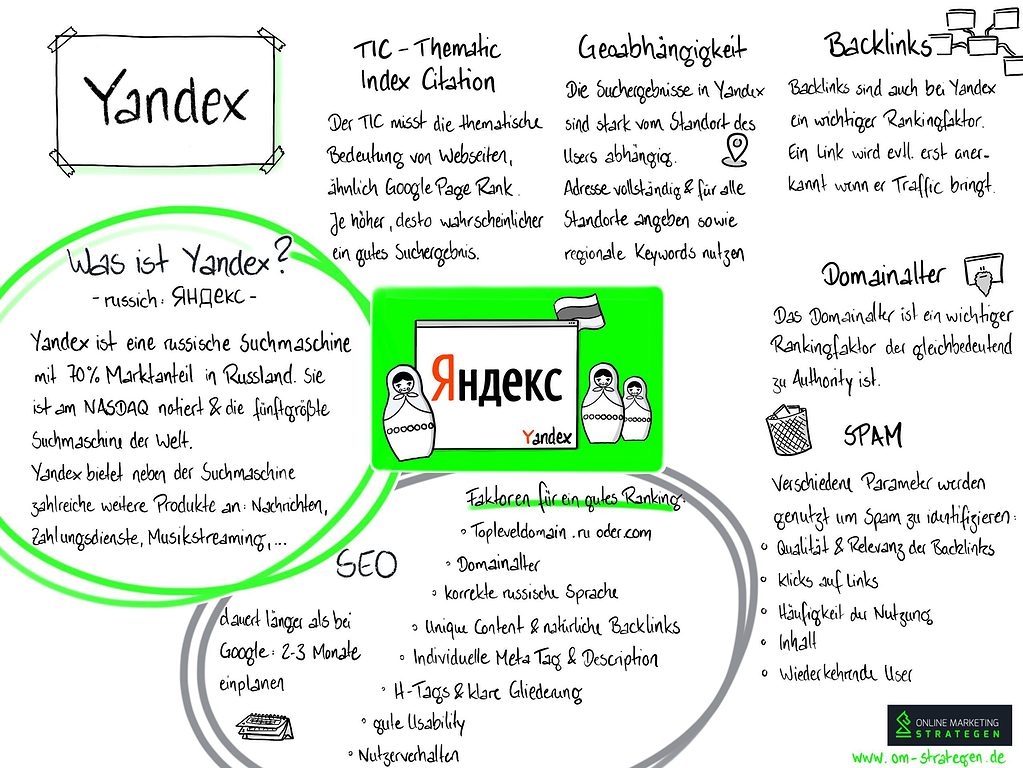 Yandex
TIC - Thematic
Index Citation
Der TIC misst die thematische
Bedeutung von Webseiten,
ähnlich Google Page Rank.
Je höher, desto wahrscheinlicher
ein gutes Suchergebnis.
Geoabhängigkeit
Die Suchergebnisse in Yandex
sind stark vom Standort des
Users abhängig.
Adresse vollständig & für alle
Standorte angeben sowie
regionale Keywords nutzen
Backlinks
Backlinks sind auch bei Yandex
ein wichtiger Rankingfaktor.
Ein Link wird evll. erst aner-
kannt wenn er Traffic bringt.
Was ist Yandex?
- russich: ЯНДЕКС -
Yandex ist eine russische Suchmaschine
mit 70% Marktanteil in Russland. Sie
ist am NASDAQ notiert & die fünftgrößte
Suchmaschine der Welt.
Yandex bietet neben der Suchmaschine
zahlreiche weitere Produkte an: Nachrichten,
Zahlungsdienste, Musikstreaming, ...
Яндекс
Yandex
Domainalter
Das Domainalter ist ein wichtiger
Rankingfaktor der gleichbedeutend
zu Authority ist.
SPAM
Verschiedene Parameter werden
genutzt um Spam zu identifizieren:
° Qualität & Relevanz der Backlinks
° Klicks auf Links
° Häufigkeit der Nutzung
° Inhalt
° Wiederkehrende User
SEO
dauert länger als bei
Google: 2-3 Monate
einplanen
Faktoren für ein gutes Ranking:
° Topleveldomain .ru oder.com
° Domainalter
° korrekte russische Sprache
° Unique Content & natürliche Backlinks
° Individuelle Meta Tag & Description
° H-Tags & klare Gliederung
° gute Usability
° Nutzerverhalten
ONLINE MARKETING
STRATEGEN
www.om-strategen.de